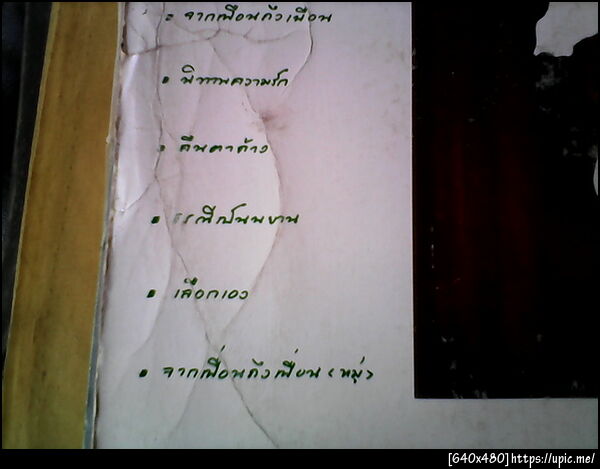 • จากเพื่อนถึงเพื่อน
• นิทานความรัก
• คืนตาค้าง
• ธรณีเป็นพยาน
• เลือกเอง
• จากเพื่อนถึงเพื่อน (หมู่)
[640x480]https://upic.me/